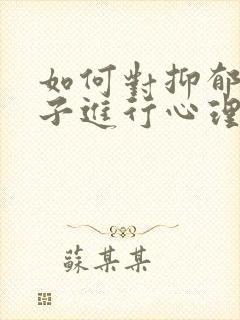 如何對抑郁
子進行心理
蘇某某